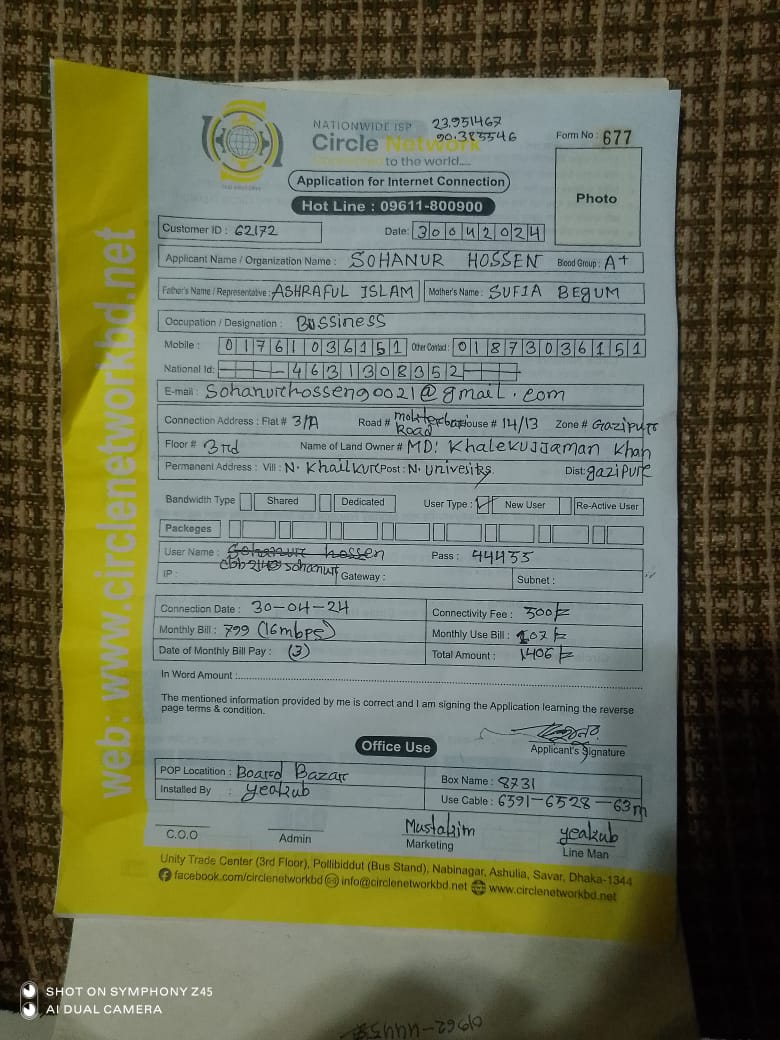 web: www.circlenetworkbd.net
NATIONWIDE ISP
23.951467
90.385546
Circle Network
Connected to the world....
Form No : 677
Application for Internet Connection
Photo
Hot Line : 09611-800900
Customer ID : 62172
Date: 30042024
Applicant Name / Organization Name : SOHANUR HOSSEN Blood Group : A+
Father's Name / Representative : ASHRAFUL ISLAM Mother's Name : SUFIA BEGUM
Occupation / Designation : Bussiness
Mobile : 01761036151 Other Contact : 01873036151
National Id: 4631308352
E-mail : Sohanurhossen90021@gmail.com
Connection Address : Flat # 3/A Road # Road House # 14/13 Zone # Gazipur
Floor # 3rd Name of Land Owner # MD: Khalekujjaman Khan
Permanent Address : Vill : N. Khailkur Post : N. Univesity Dist: gazipur
Bandwidth Type Shared Dedicated User Type : New User Re-Active User
Packeges
User Name : Sohanur hossen Pass : 44455
sohanur
IP : Gateway : Subnet :
Connection Date : 30-04-24 Connectivity Fee : 500/=
Monthly Bill : 799 (16mbps) Monthly Use Bill : 107/=
Date of Monthly Bill Pay : (3) Total Amount : 1406/=
In Word Amount :
The mentioned information provided by me is correct and I am signing the Application learning the reverse
page terms & condition.
Applicant's Signature
Office Use
POP Locatition : Board Bazar Box Name : 8731
Installed By : yeakub Use Cable : 6591-6528-63m
Mustakim yeakub
C.O.O Admin Marketing Line Man
Unity Trade Center (3rd Floor), Pollibiddut (Bus Stand), Nabinagar, Ashulia, Savar, Dhaka-1344
facebook.com/circlenetworkbd info@circlenetworkbd.net www.circlenetworkbd.net
SHOT ON SYMPHONY Z45
AI DUAL CAMERA